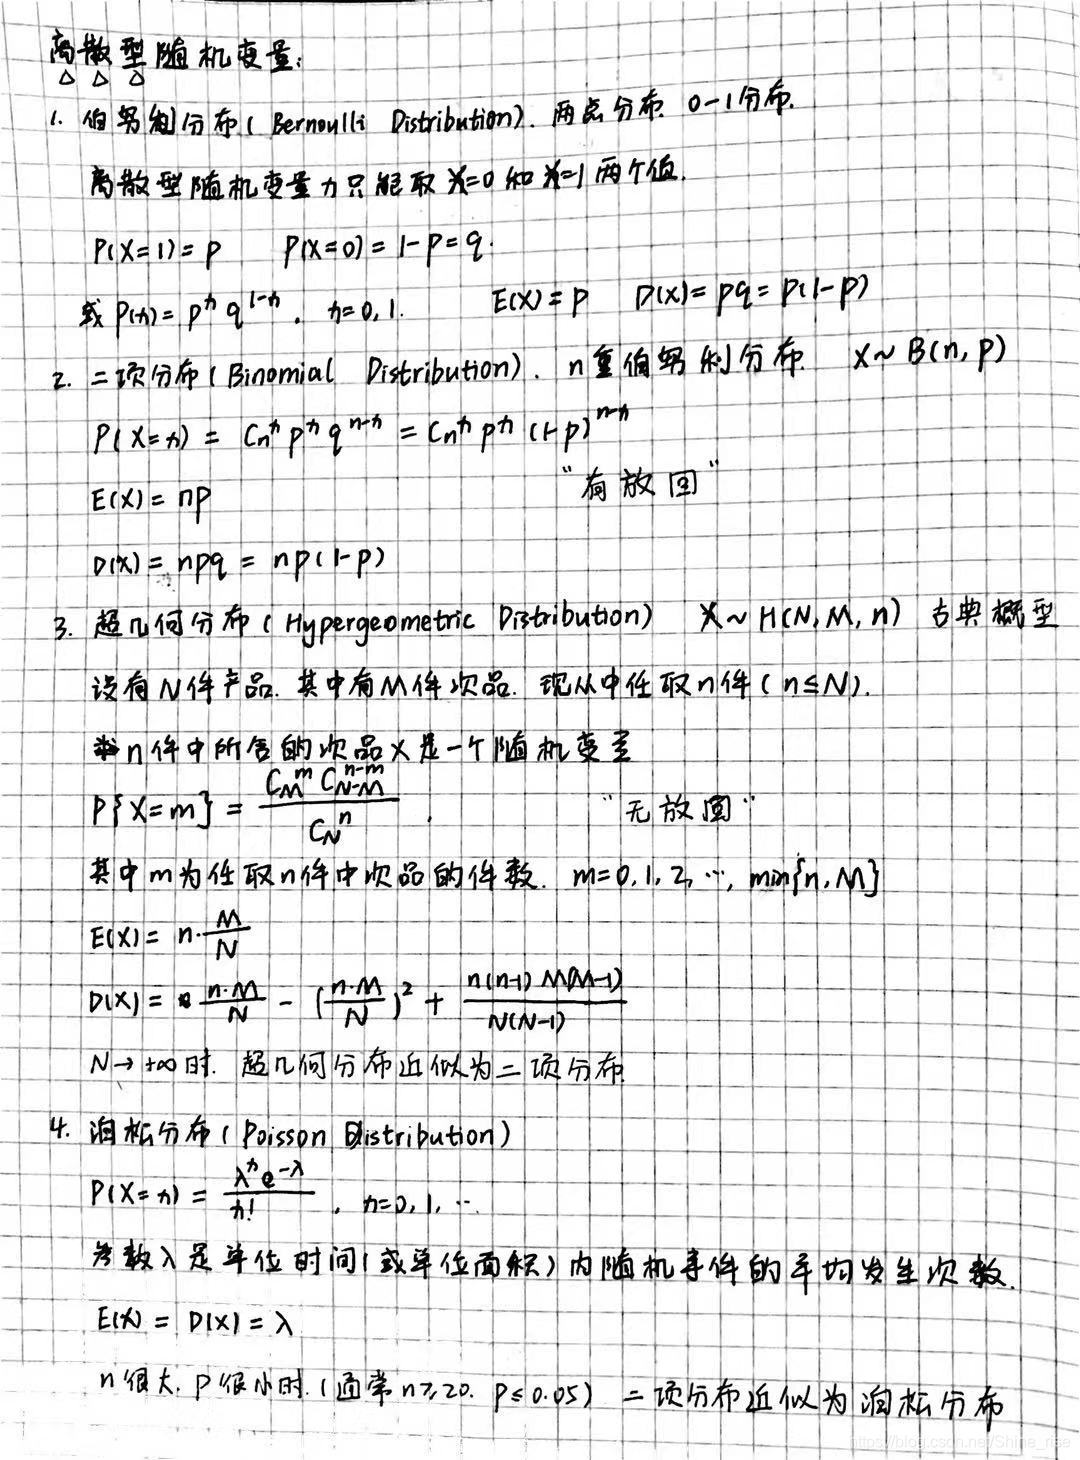 离散型随机变量:
1. 伯努利分布(Bernoulli Distribution). 两点分布. 0-1分布.
离散型随机变量x只能取x=0和x=1两个值.
P(X=1)=p P(X=0)=1-p=q.
或P(x)=p^x q^{1-x}. x=0,1. E(X)=p D(X)=pq=p(1-p)
2. 二项分布(Binomial Distribution). n重伯努利分布. X~B(n,p)
P(X=x)=C_n^x p^x q^{n-x}=C_n^x p^x (1-p)^{n-x}
E(X)=np "有放回"
D(X)=npq=np(1-p)
3. 超几何分布(Hypergeometric Distribution) X~H(N,M,n) 古典概型
设有N件产品. 其中有M件次品. 现从中任取n件(n≤N).
n件中所含的次品X是一个随机变量
P{X=m}=\frac{C_M^m C_{N-M}^{n-m}}{C_N^n}. "无放回"
其中m为任取n件中次品的件数. m=0,1,2,…,min{n,M}
E(X)=n·\frac{M}{N}
D(X)=\frac{n·M}{N}-(\frac{n·M}{N})^2+\frac{n(n-1)M(M-1)}{N(N-1)}
N→+∞时. 超几何分布近似为二项分布
4. 泊松分布(Poisson Distribution)
P(X=x)=\frac{λ^x e^{-λ}}{x!}. x=0,1,…
参数λ是单位时间(或单位面积)内随机事件的平均发生次数.
E(X)=D(X)=λ
n很大. p很小时.(通常n≥20. p≤0.05) 二项分布近似为泊松分布
https://blog.csdn.net/Shine_rise